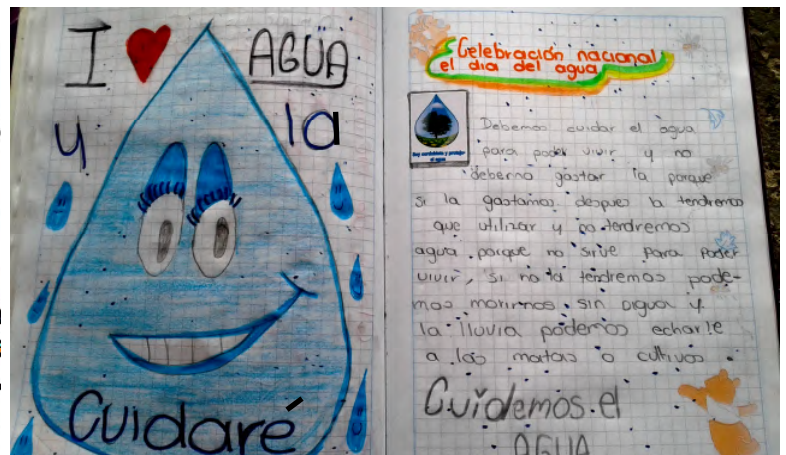 I ❤ AGÜA
y la
Cuidaré
Celebración nacional
el dia del agua
Debemos cuidar el agua
para poder vivir y no
deberno gastar la porque
si la gastamos despues la tendremos
que utilizar y no tendremos
agua porque nos sirve para poder
vivir, si no la tendremos pode-
mos morirnos sin agua y
la lluvia podemos echarle
a las matas o cultivos.
Cuidemos el
AGUA